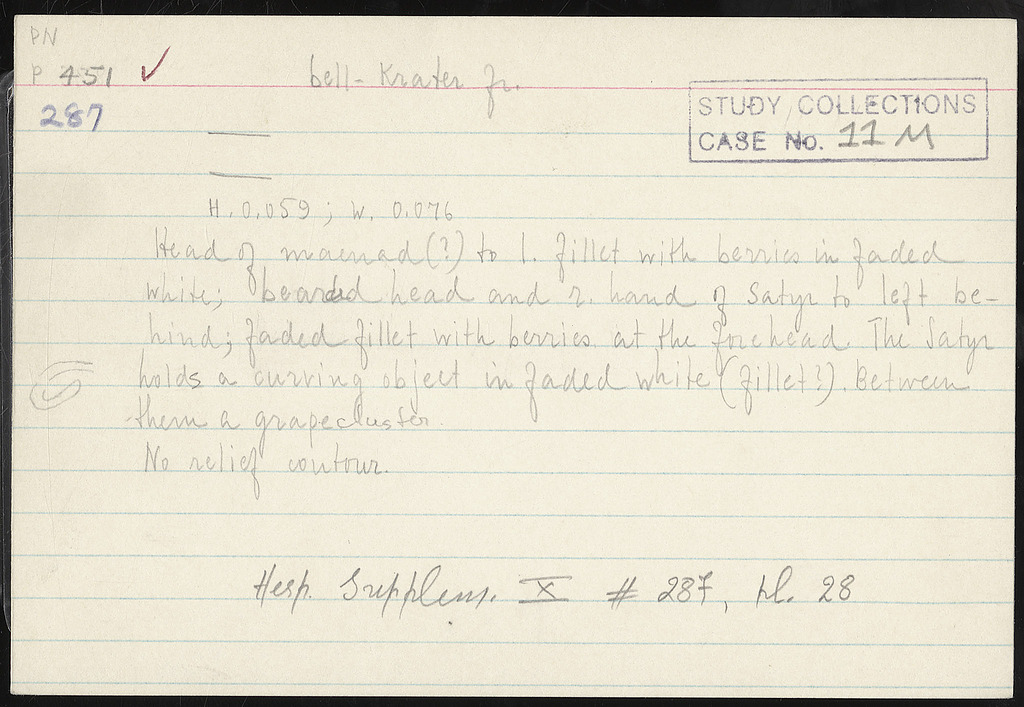 PN
P 451 ✓ bell-Krater fr.
287
STUDY COLLECTIONS
CASE No. 11 M
H. 0.059 ; W. 0.076
Head of maenad (?) to l. fillet with berries in faded
white; bearded head and r. hand of Satyr to left be-
hind; faded fillet with berries at the forehead. The Satyr
holds a curving object in faded white (fillet?). Between
them a grapecluster.
No relief contour.
Hesp. Supplem. X # 287, pl. 28